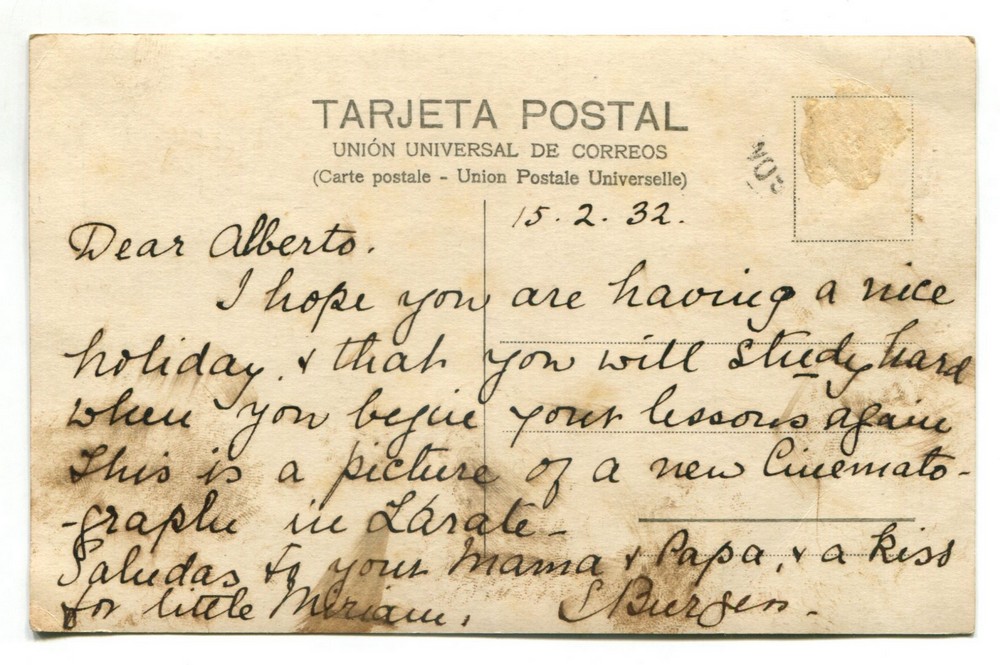 TARJETA POSTAL
UNIÓN UNIVERSAL DE CORREOS
(Carte postale - Union Postale Universelle)
15.2.32.
Dear Alberto.
I hope you are having a nice
holiday, & that you will study hard
when you begin your lessons again
This is a picture of a new Cinemato-
-graph in Zárate-
Saludas to your Mama & Papa, & a kiss
for little Miriam.